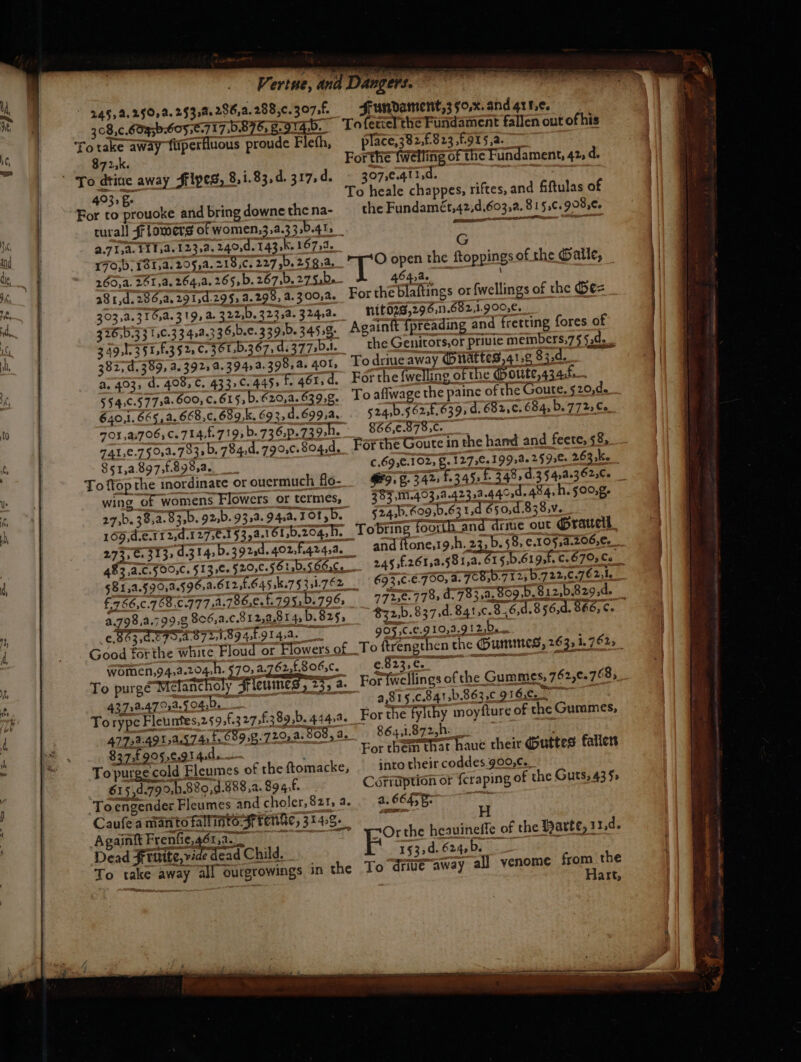 Vertue, and Dangers.
245,a.250,a.253,a.286,a.288,c.307,f.
308,c.604,b.605,c.717,b.876,g.914,b.
To take away superfluous proude Flesh,
872,k.
To drive away Flyes, 8,i.83,d.317,d.
493,g.
For to prouoke and bring downe the na-
turall Flowers of women,3,a.33,b.41,
a.71,a.111,a.123,a.240,d.143,k.167,a.
170,b.181,a.205,a.218,c.227,b.258,a.
260,a.261,a.264,a.265,b.267,b.275,b.
281,d.286,a.291,d.295,a.298,a.300,a.
303,a.316,a.319,a.322,b.323,a.324,a.
326,b.331,c.334,a.336,b.e.339,b.345,g.
349,l.351,f.352,c.361,b.367,d.377,b.i.
382,d.389,a.392,a.394,a.398,a.401,
a.403,d.408,c.433,c.445,f.461,d.
554,c.577,a.600,c.615,b.620,a.639,g.
640,i.665,a.668,c.689,k.693,d.699,a.
701,a.706,c.714,f.719,b.736,p.739,h.
741,e.750,a.783,b.784,d.790,c.804,d.
851,a.897,f.898,a.
To stop the inordinate or ouermuch flo-
wing of womens Flowers or termes,
27,b.38,a.83,b.92,b.93,a.94,a.101,b.
109,d.e.112,d.127,e.153,a.161,b.204,h.
273,e.313,d.314,b.392,d.402,f.424,a.
483,a.c.500,c.513,e.520,c.561,b.566,c.
581,a.590,a.596,a.612,f.645,k.753,i.762
f.766,c.768.c.777,a.786,e.f.795,b.796,
a.798,a.799,g.806,a.c.812,a,814,b.825,
e.863,d.870,a.872,l.894,f.914,a.
Good for the white Floud or Flowers of
women,94,a.204,h.570,a.762,f.806,c.
To purge Melancholy Fleumes, 23, a.
437,a.470,a.504,b.
To rype Fleumes,259,f.327,f.389,b.444,a.
477,a.491,a.574,f.689,g.720,a.808,a.
837,f.905,e.914,d.
To purge cold Fleumes of the stomacke,
615,d.790,b.880,d.888,a.894,f.
To engender Fleumes and choler,821, a.
Cause a man to fall into Frensie, 314,g.
Against Frensie,461,a.
Dead Fruite,vide dead Child.
To take away all outgrowings in the
Fundament,350,x. and 411,e.
To settel the Fundament fallen out of his
place,382,f.823,f.915,a.
For the swelling of the Fundament, 42, d.
307,e.411,d.
To heale chappes, riftes, and fistulas of
the Fundamẽt,42,d,603,a.815,c.908,e.
G
TO open the stoppings of the Galle,
464,a.
For the blastings or swellings of the Ge-
nitors,296,n.682,i.900,c.
Against spreading and fretting sores of
the Genitors,or priuie members,755,d.
To drive away Gnattes,41,g 83,d.
For the swelling of the Goute,434,f.
To asswage the paine of the Goute, 520,d.
524,b.562,f.639,d.682,c.684,b.772,e.
866,e.878,c.
For the Goute in the hand and feete, 58,
c.69,e.102,g.127,e.199,a.259,e.263,k.
383,m.403,a.423,a.440,d.484,h.500,g.
524,b.609,b.631,d 650,d.838,v.
To bring foorth and driue out Grauell
and stone,19,h.23,b.58,e.105,a.206,e.
245,f.261,a.581,a.615,b.619,f.c.670,c.
693,c.e.700,a.708,b.712,b.722,c.762,i.
772,e.778,d.783,a.809,b.812,b,829,d.
832,b.837,d.841,c.8.6,d.856,d.866,c.
905,c.e.910,a.912,b.
To strengthen the Gummes, 263,i.762,
e.823,e.
For swellings of the Gummes, 762,e.768,
a,815,c.841,b.863,c 916,e.
For the fylthy moysture of the Gummes,
864,i.872,h.
For them that haue their Guttes fallen
into their coddes 900,c.
Corruption or scraping of the Guts,435,
a.664,g.
H
FOr the heauinesse of the Harte, 11,d.
153,d.624,b.
To driue away all venome from the
Hart,